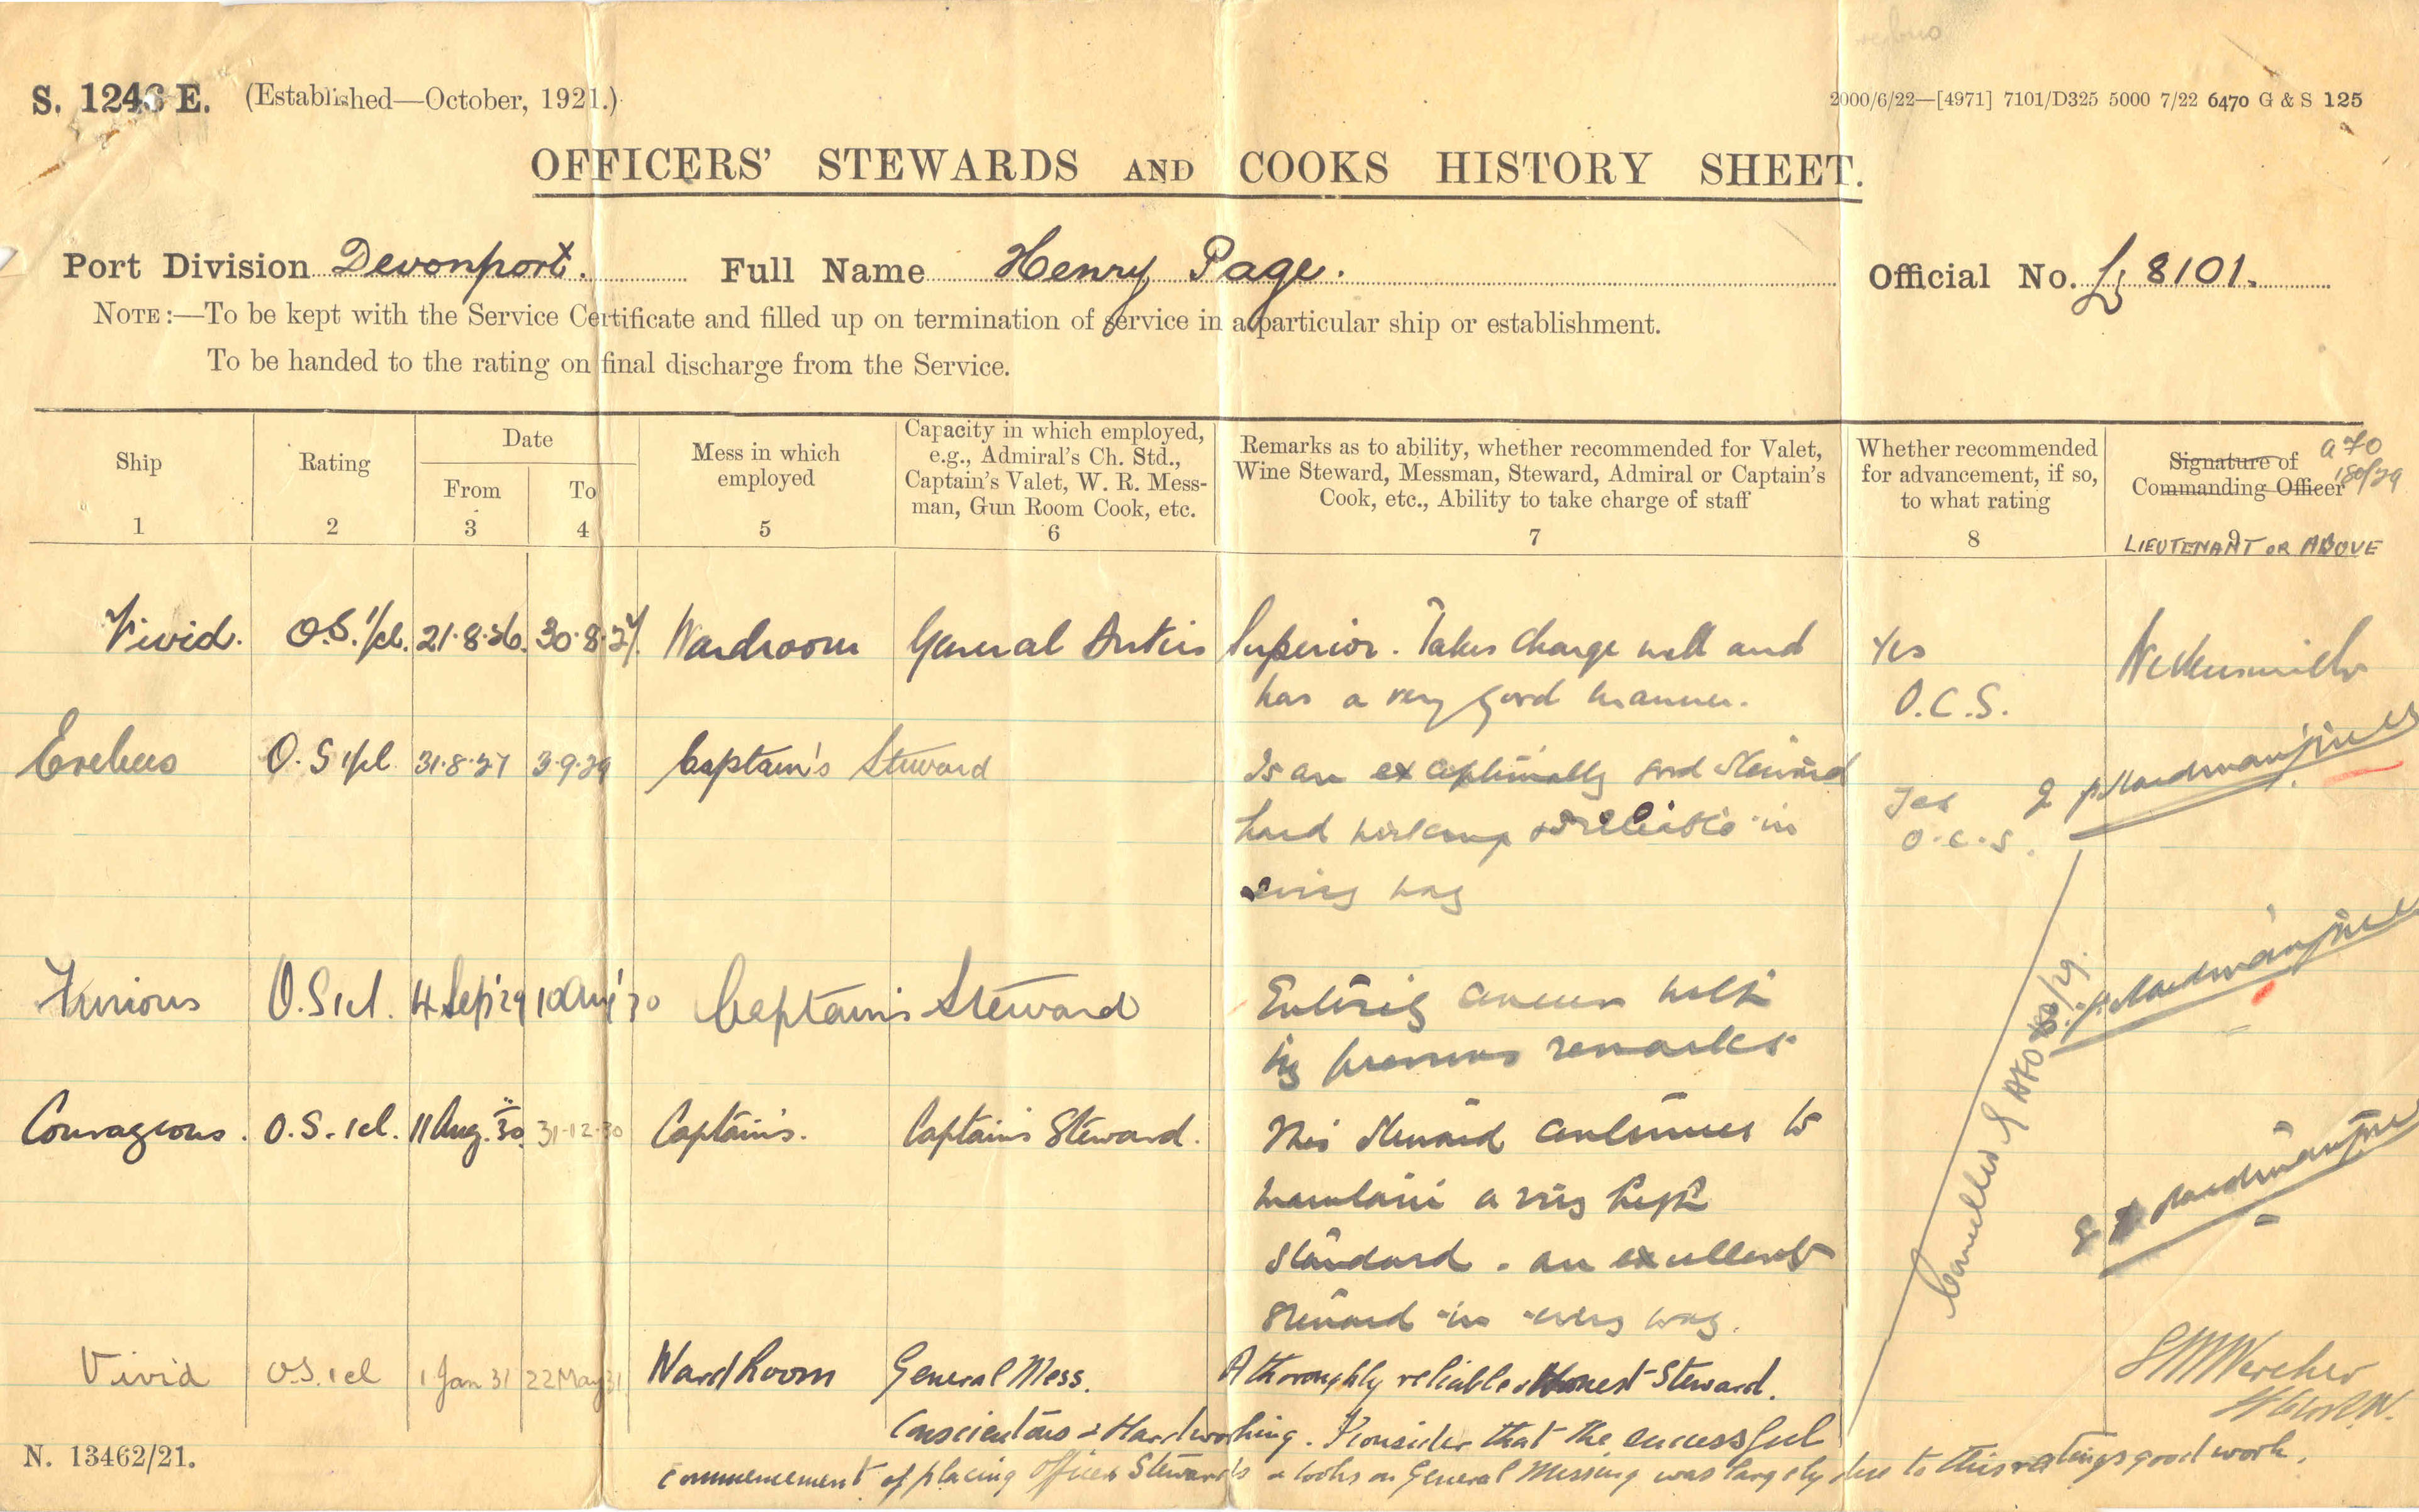 S. 1246 E. (Established—October, 1921.)
2000/6/22—[4971] 7101/D325 5000 7/22 6470 G & S 125
OFFICERS' STEWARDS AND COOKS HISTORY SHEET.
Port Division Devonport. Full Name Henry Page. Official No. L 8101.
NOTE:—To be kept with the Service Certificate and filled up on termination of service in a particular ship or establishment.
To be handed to the rating on final discharge from the Service.
Ship
1
Rating
2
Date
From
3
To
4
Mess in which
employed
5
Capacity in which employed,
e.g., Admiral's Ch. Std.,
Captain's Valet, W. R. Mess-
man, Gun Room Cook, etc.
6
Remarks as to ability, whether recommended for Valet,
Wine Steward, Messman, Steward, Admiral or Captain's
Cook, etc., Ability to take charge of staff
7
Whether recommended
for advancement, if so,
to what rating
8
Signature of
Commanding Officer
9
LIEUTENANT OR ABOVE
Vivid. O.S. 1/cl. 21.8.26. 30.8.27. Wardroom General Duties Superior. Takes charge well and Yes
has a very good manner. O.C.S.
Erebus O.S 1/cl 31.8.27 3.9.29 Captain's Steward Is an exceptionally good Steward
hard working & reliable in Yes
every way O.C.S.
Furious O.S 1cl. 4 Sep '29 10 Aug '30 Captain's Steward Entirely concur with
my previous remarks.
Courageous. O.S. 1cl. 11 Aug. 30. 31-12-30 Captain's. Captain's Steward. This Steward continues to
maintain a very high
standard. an excellent
Steward in every way.
Cancelled AFO /29.
Vivid O.S. 1cl 1 Jan 31 22 May 31 WardRoom General Mess. A thoroughly reliable & Honest Steward.
Conscientious & Hardworking. I consider that the successful
commencement of placing officers Stewards & Cooks on General Messing was largely due to this ratings good work.
N. 13462/21.